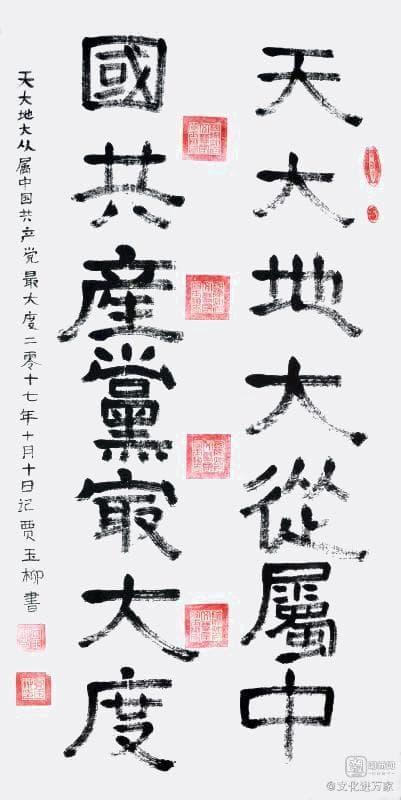 天大地大從屬中
國共産黨最大度
天大地大从属中国共产党最大度二零十七年十月十日记贾玉柳書
@文化进万家